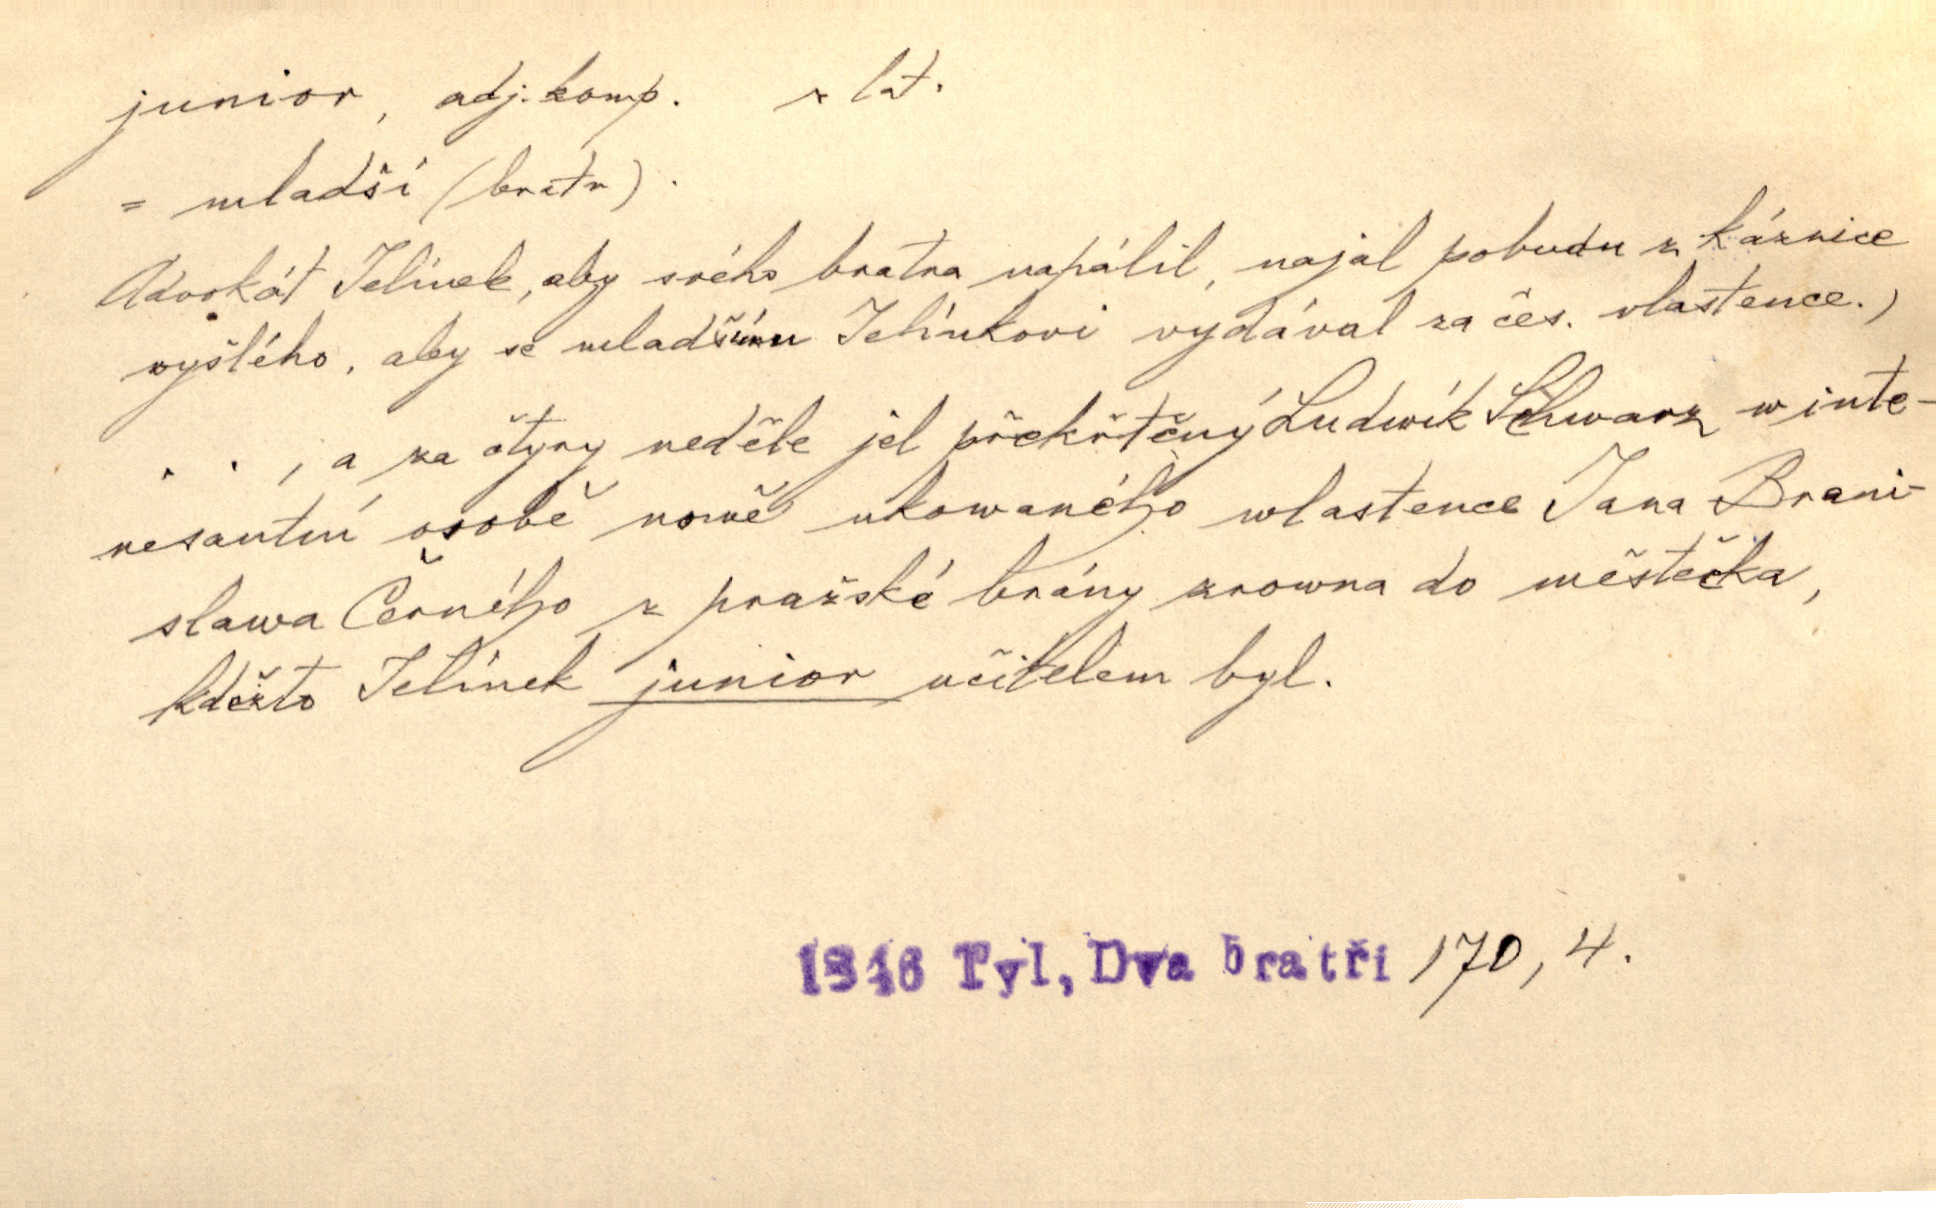 junior, adj. komp. z lat.
= mladší (bratr).
Advokát Jelínek, aby svého bratra napálil, najal pobudu z káznice
vyšlého, aby se mladšímu Jelínkovi vydával za čes. vlastence.)
. . , a za čtyry neděle jel překřtěný Ludwík Schwarz w inte-
resantní osobě nowě ukowaného wlastence Jana Brani-
slawa Černého z pražské brány zrowna do městečka,
kdežto Jelínek junior učitelem byl.
1846 Tyl, Dva bratři 170, 4.